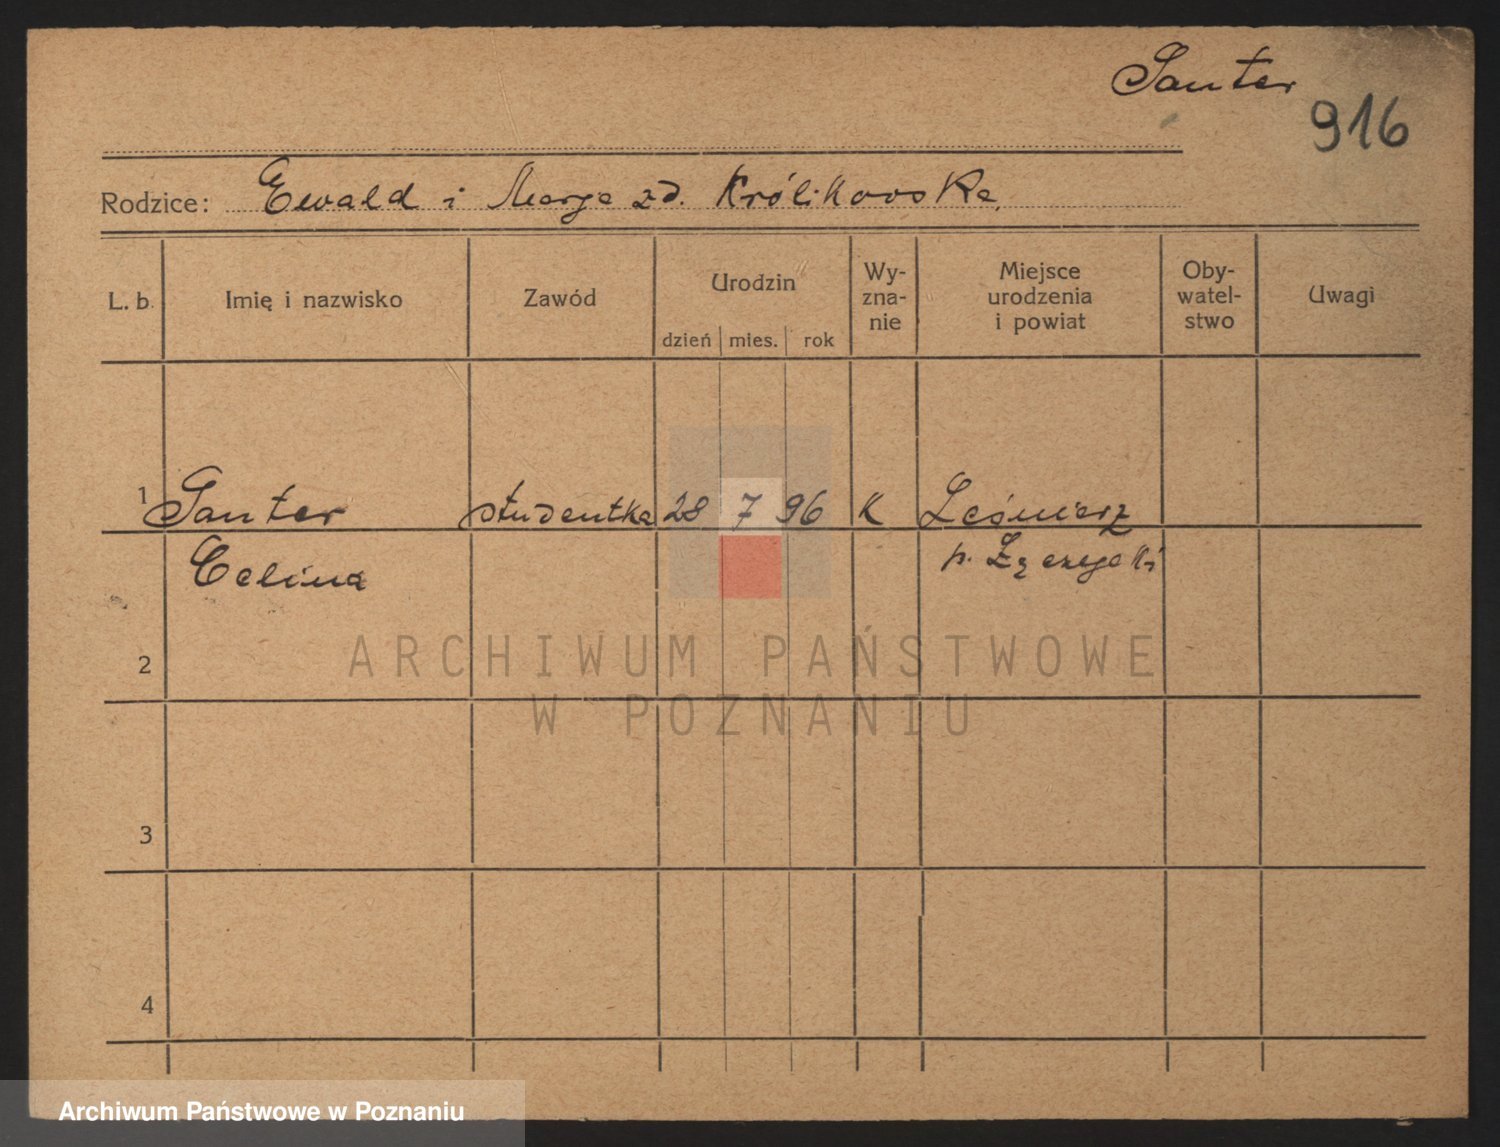 Santer
916
Rodzice: Ewald i Marja zd. Królikowska
L. b. Imię i nazwisko Zawód Urodzin dzień mies. rok Wy-zna-nie Miejsce urodzenia i powiat Oby-watel-stwo Uwagi
1 Santer studentka 28 7 96 K Leśmierz
Celina p. Łęczycki
2
ARCHIWUM PAŃSTWOWE
W POZNANIU
3
4
Archiwum Państwowe w Poznaniu